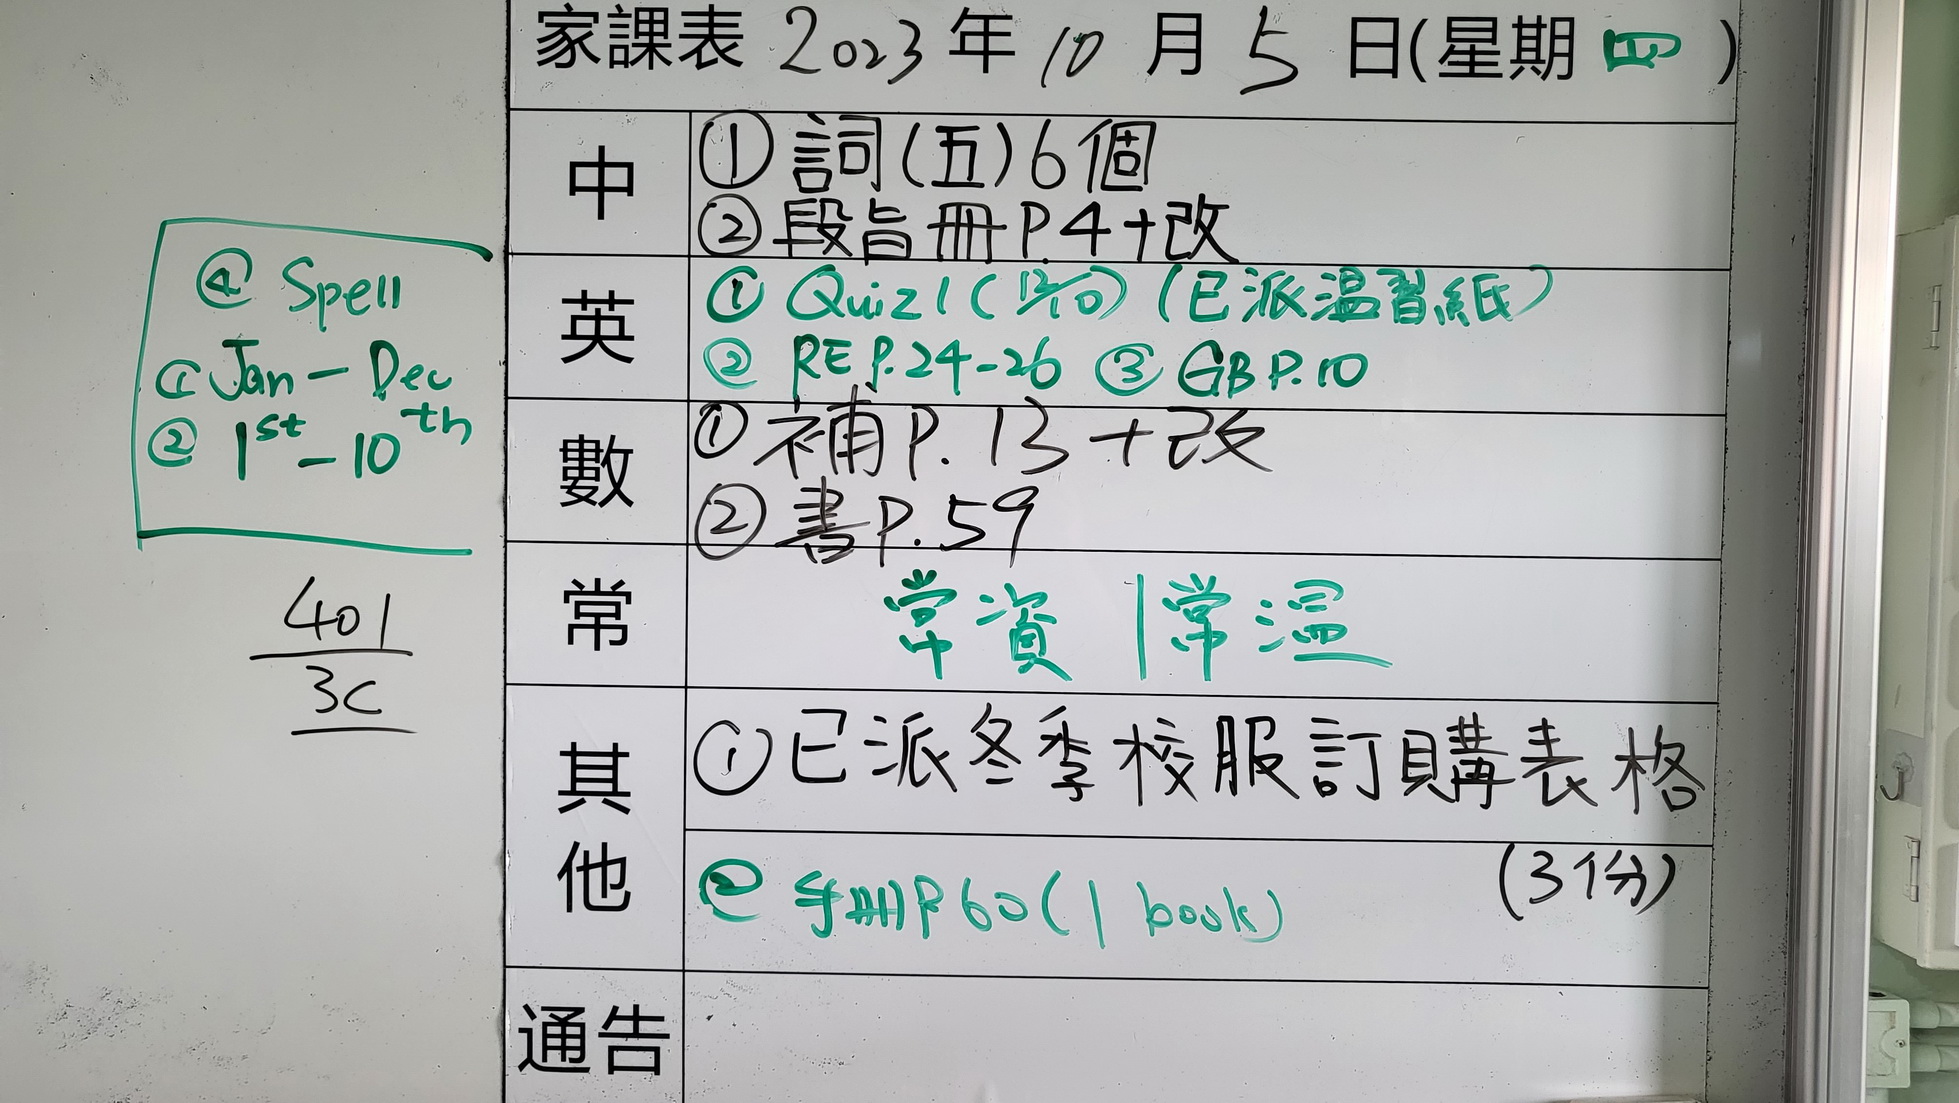 家課表 2023 年 10 月 5 日(星期 四 )
中
① 詞(五)6個
② 段旨冊P.4+改
英
① Quiz 1 (12/10) (已派溫習紙)
② RE P.24-26 ③ GB P.10
數
① 補P.13+改
② 書P.59
常
常資 | 常溫
其他
① 已派冬季校服訂購表格
(3份)
② 手冊P60(1 book)
通告
④ Spell
① Jan - Dec
② 1st - 10th
401
3C